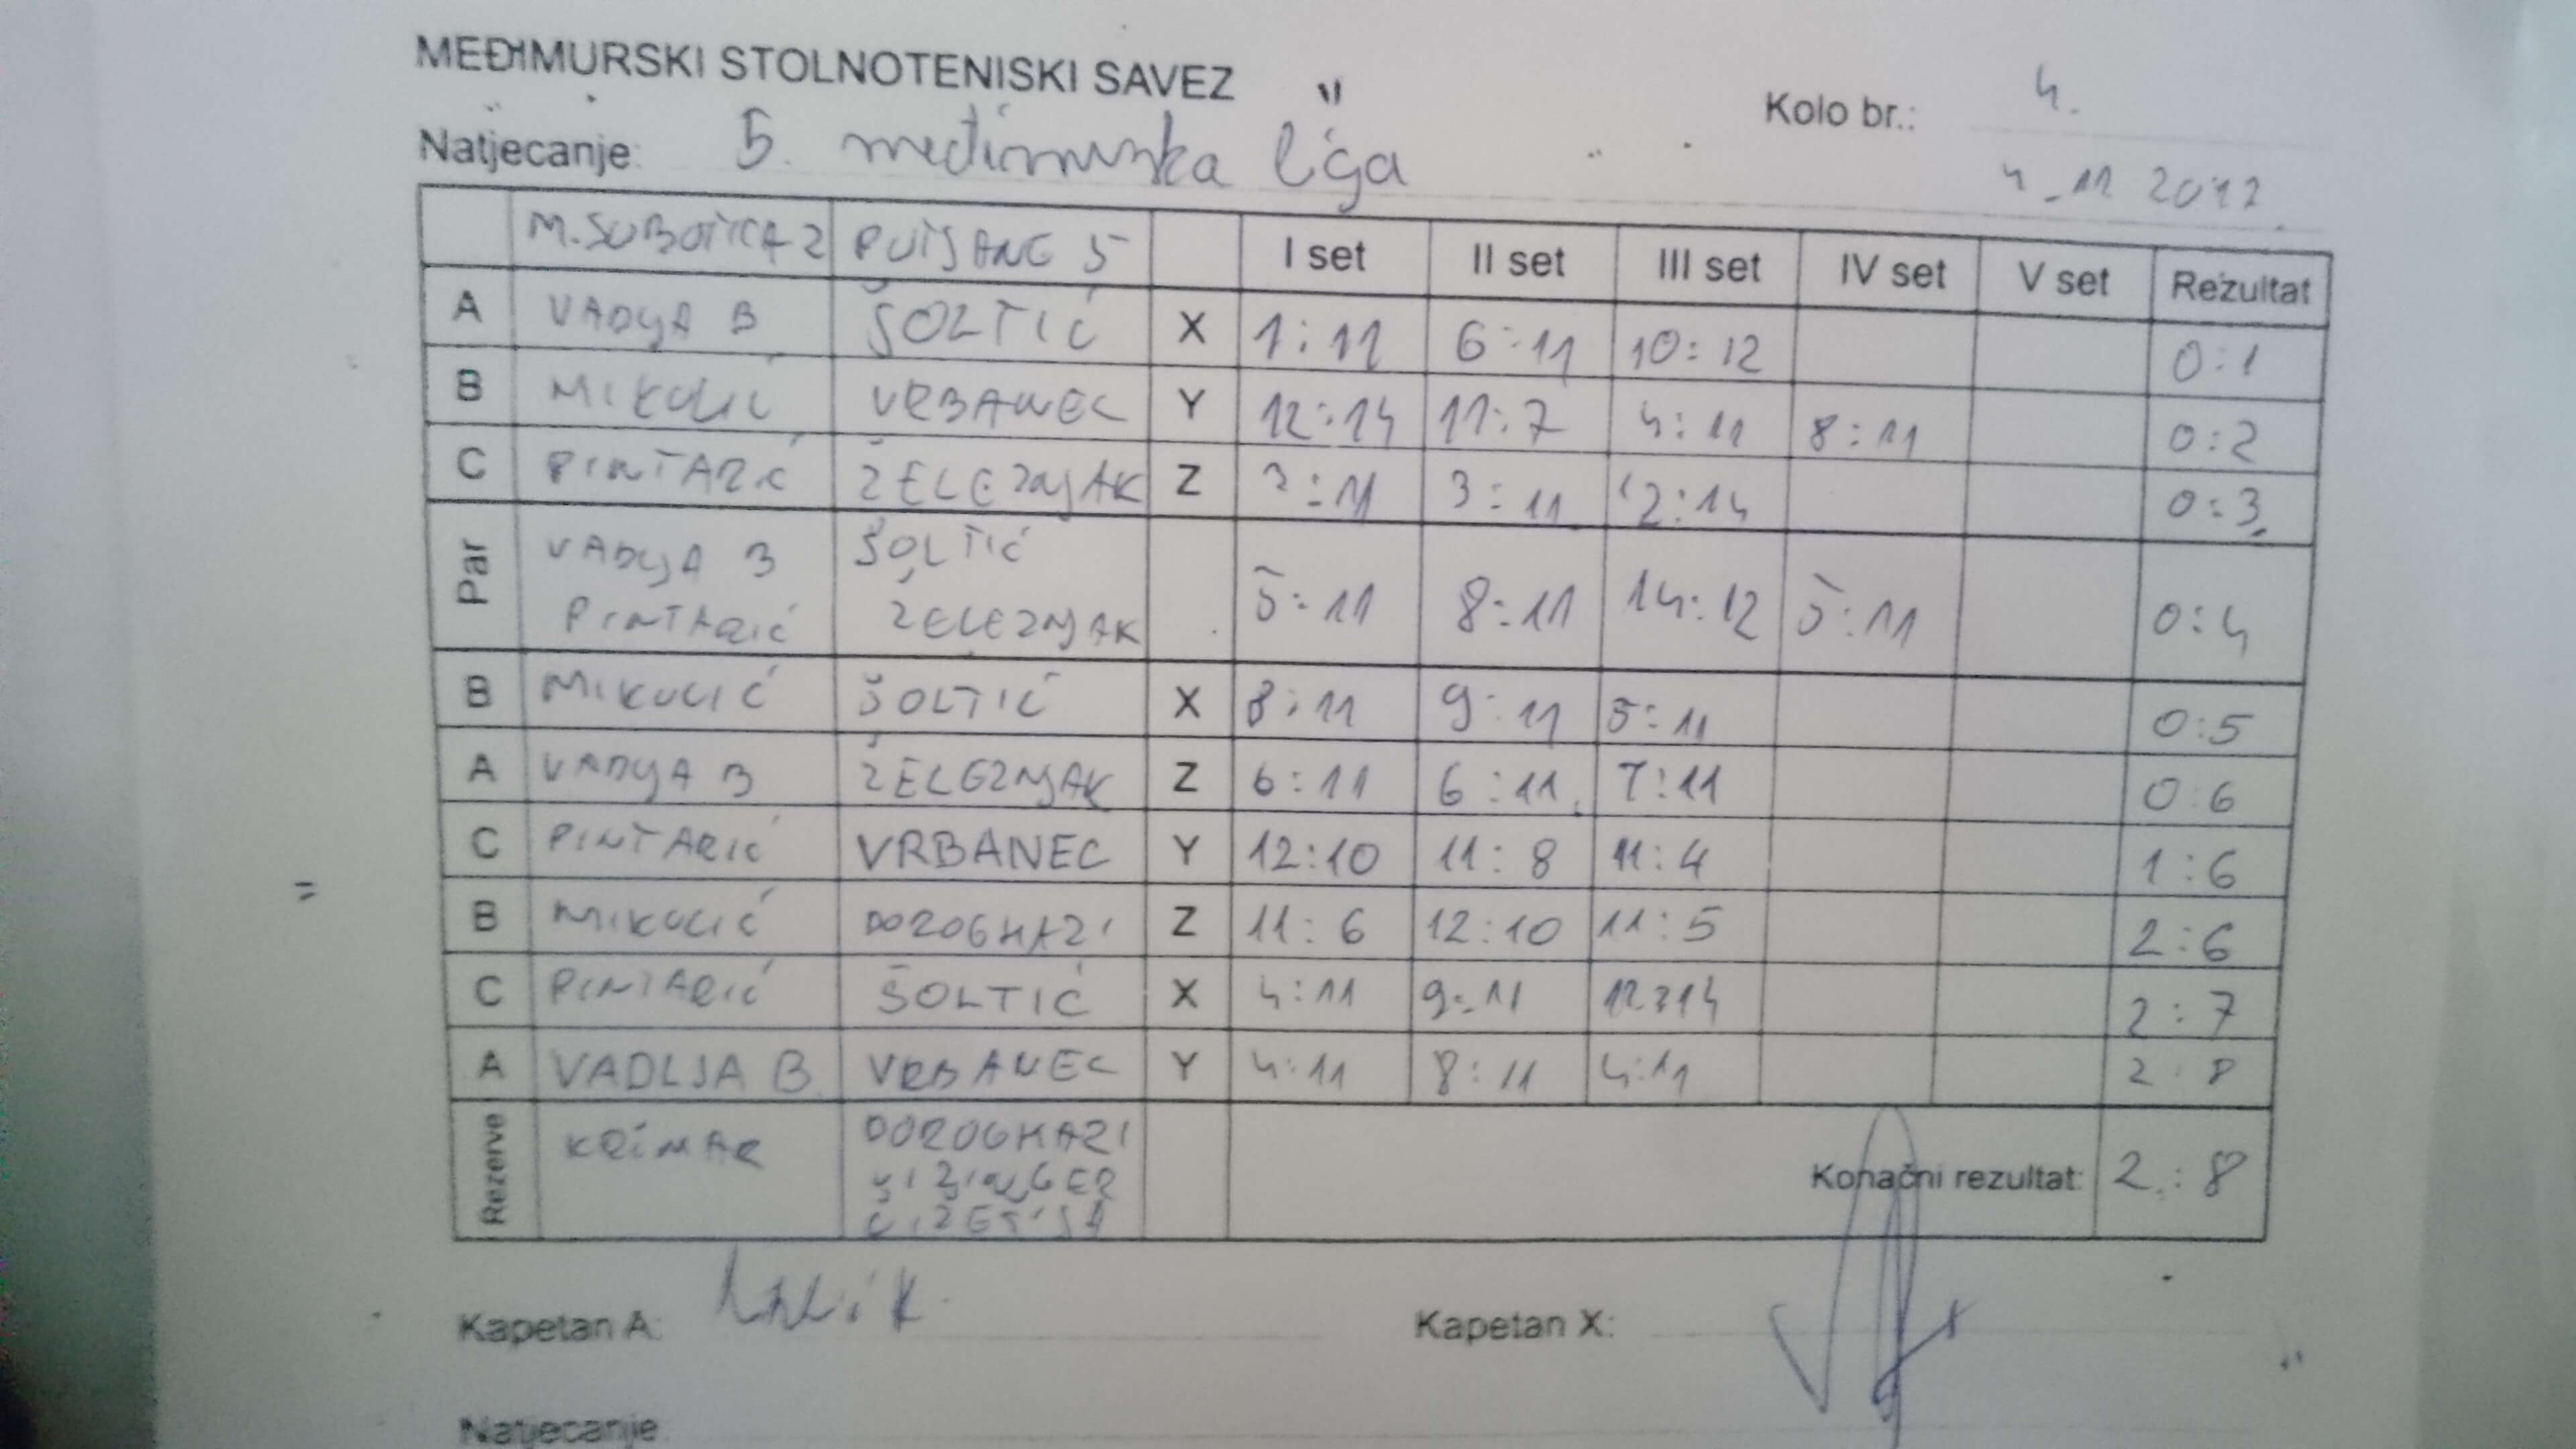 MEĐIMURSKI STOLNOTENISKI SAVEZ
Kolo br.: 4.
Natjecanje: 5. međimurska liga
4. 11 2017.
M. SUBOTICA 2 PUTJANE 5 I set II set III set IV set V set Rezultat
A VADLJA B ŠOLTIĆ X 1:11 6:11 10:12 0:1
B MIKULIĆ VRBANEC Y 12:14 11:7 4:11 8:11 0:2
C PINTARIĆ ŽELEZNJAK Z 3:11 3:11 12:14 0:3
Par VADLJA B ŠOLTIĆ
PINTARIĆ ŽELEZNJAK 5:11 8:11 14:12 5:11 0:4
B MIKULIĆ ŠOLTIĆ X 8:11 9:11 5:11 0:5
A VADLJA B ŽELEZNJAK Z 6:11 6:11 7:11 0:6
C PINTARIĆ VRBANEC Y 12:10 11:8 11:4 1:6
B MIKULIĆ DOROGHAZI Z 11:6 12:10 11:5 2:6
C PINTARIĆ ŠOLTIĆ X 4:11 9:11 12:14 2:7
A VADLJA B. VRBANEC Y 4:11 8:11 4:11 2:8
Rezerve KRIMAR DOROGHAZI
ŽIŽINGER
Konačni rezultat: 2:8
Kapetan A: Kapetan X:
Natjecanje